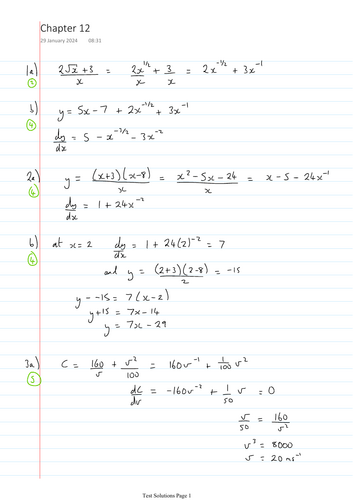 Chapter 12
29 January 2024 08:31
1a) (2√x + 3)/x = 2x^(1/2)/x + 3/x = 2x^(-1/2) + 3x^(-1)
②
b) y = 5x - 7 + 2x^(-1/2) + 3x^(-1)
④
dy/dx = 5 - x^(-3/2) - 3x^(-2)
2a) y = (x+3)(x-8)/x = (x² - 5x - 24)/x = x - 5 - 24x^(-1)
④
dy/dx = 1 + 24x^(-2)
b) at x = 2 dy/dx = 1 + 24(2)^(-2) = 7
④
and y = (2+3)(2-8)/2 = -15
y - -15 = 7(x - 2)
y + 15 = 7x - 14
y = 7x - 29
3a) C = 160/v + v²/100 = 160v^(-1) + 1/100 v²
dC/dv = -160v^(-2) + 1/50 v = 0
v/50 = 160/v²
v³ = 8000
v = 20 ms^(-1)
Test Solutions Page 1